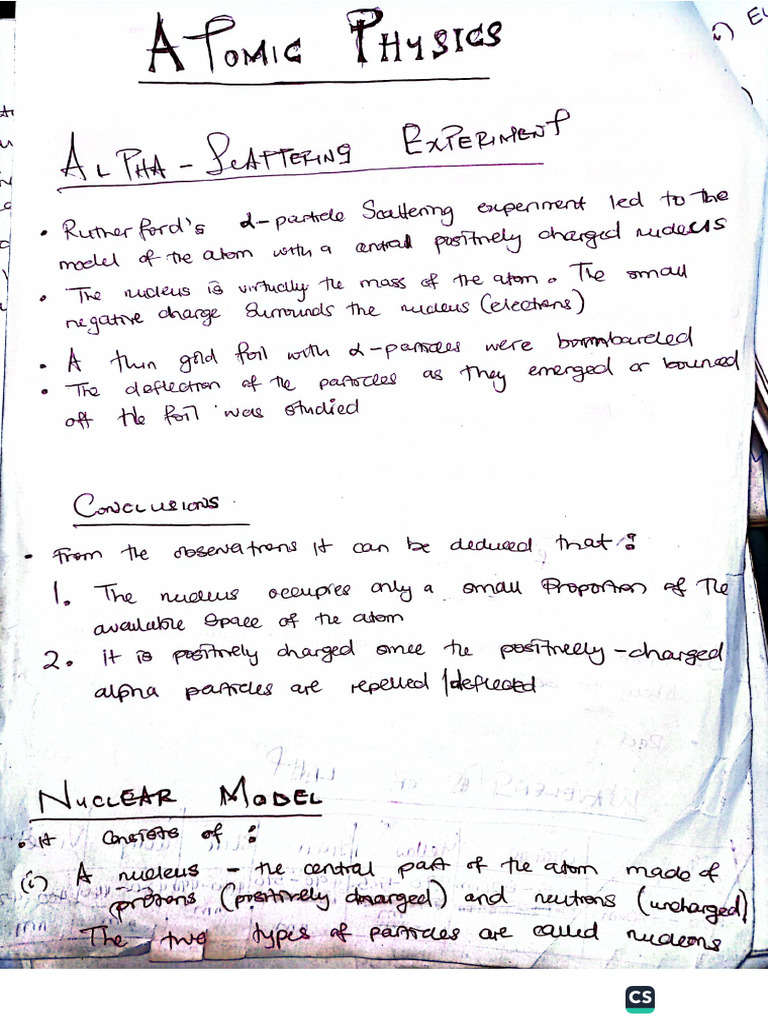 ATOMIC PHYSICS
ALPHA - SCATTERING EXPERIMENT
• Rutherford's α-particle Scattering experiment led to the
model of the atom with a central positively charged nucleus
• The nucleus is virtually the mass of the atom. The small
negative charge surrounds the nucleus (electrons)
• A thin gold foil with α-particles were bombarded
• The deflection of the particles as they emerged or bounced
off the foil was studied
CONCLUSIONS
- From the observations it can be deduced that:
1. The nucleus occupies only a small proportion of the
available space of the atom
2. It is positively charged since the positively-charged
alpha particles are repelled/deflected
NUCLEAR MODEL
• it consists of:
(i) A nucleus - the central part of the atom made of
protons (positively charged) and neutrons (uncharged)
The two types of particles are called nucleons
CS